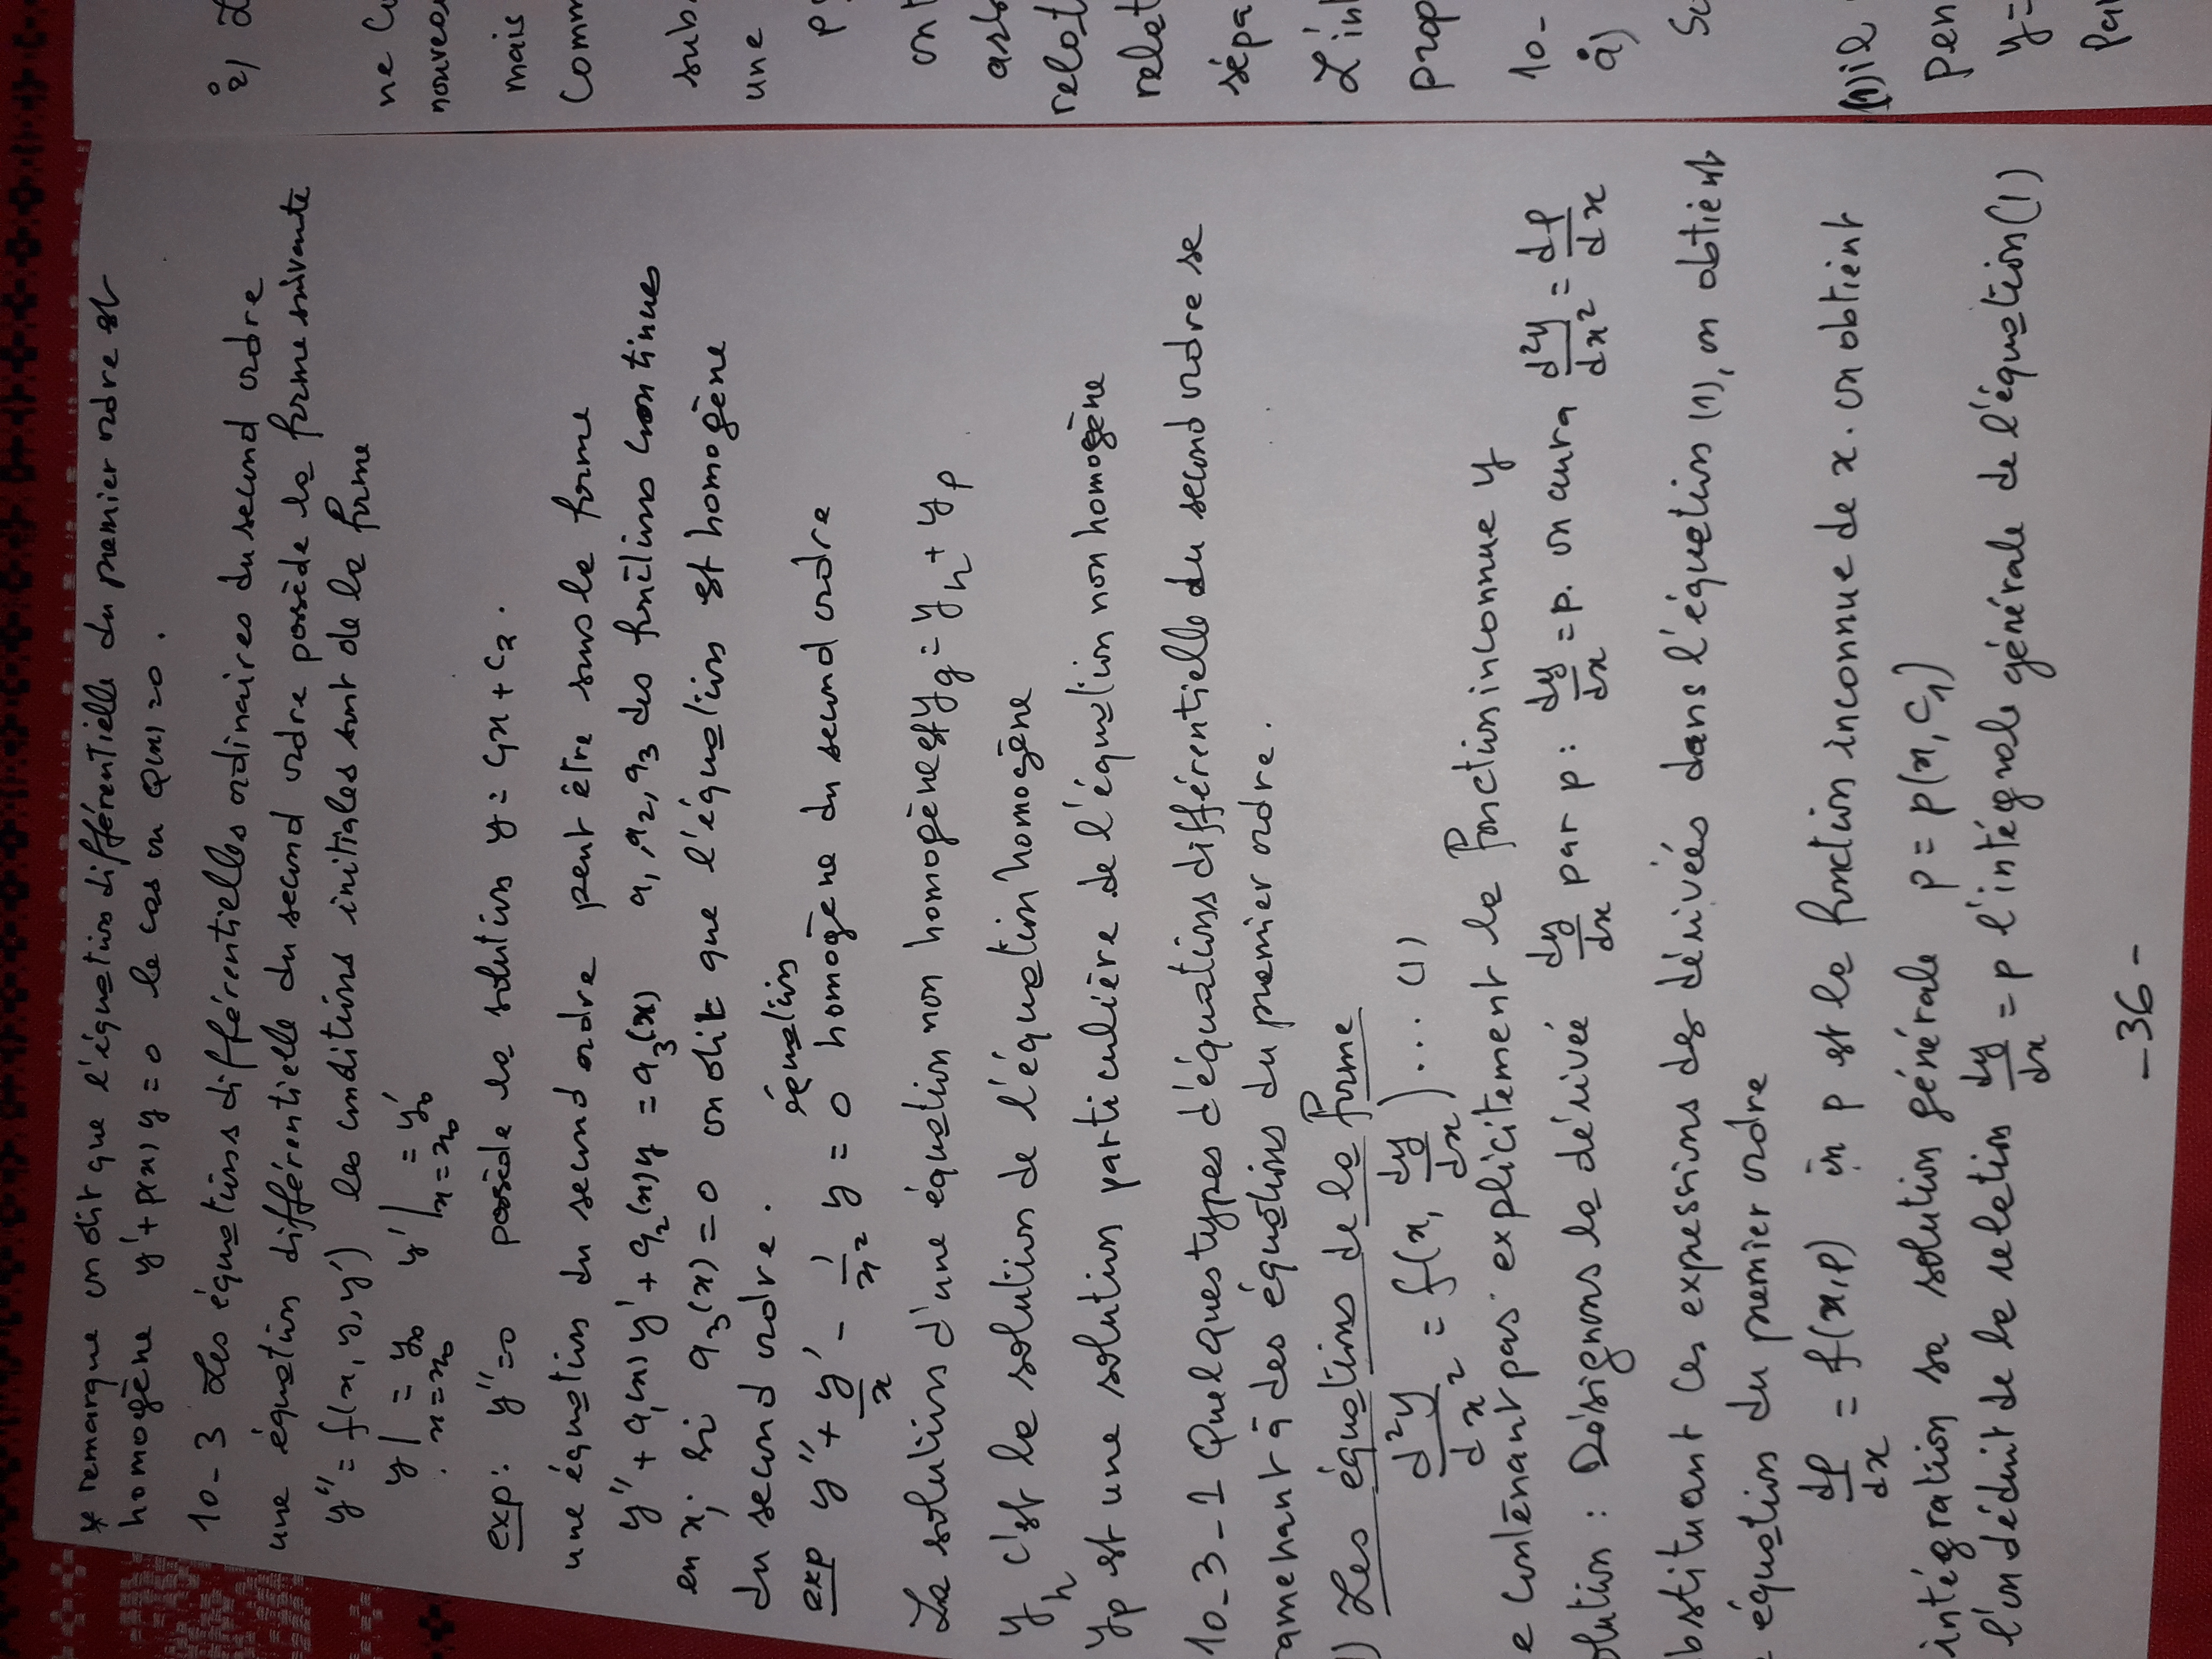 * remarque on dit que l'équation différentielle du premier ordre est
homogène y'+p(x)y=0 le cas où Q(x)=0.
10-3 Les équations différentielles ordinaires du second ordre
une équation différentielle du second ordre possède la forme suivante
y''=f(x,y,y') les conditions initiales sont de la forme
y|x=x0 = y0 y'|x=x0 = y'0
exp: y''=0 possède la solution y=c1x+c2.
une équation du second ordre peut être sous la forme
y''+a1(x)y'+a2(x)y=a3(x) a1,a2,a3 des fonctions continues
en x; si a3(x)=0 on dit que l'équation est homogène
du second ordre.
exp y''+y'/x-1/x² y=0 équation homogène du second ordre
La solution d'une équation non homogène est yg=yh+yp
yh c'est la solution de l'équation homogène
yp est une solution particulière de l'équation non homogène
10-3-1 Quelques types d'équations différentielle du second ordre se
ramenant à des équations du premier ordre.
) Les équations de la forme
d²y/dx² = f(x, dy/dx)... (1)
e contenant pas explicitement la fonction inconnue y
olution : Désignons la dérivée dy/dx par p: dy/dx=p. on aura d²y/dx²=dp/dx
bstituant ces expressions des dérivées dans l'équation (1), on obtient
équation du premier ordre
dp/dx = f(x,p) où p est la fonction inconnue de x. on obtient
intégration sa solution générale p=p(x,c1)
l'on déduit de la relation dy/dx=p l'intégrale générale de l'équation(1)
-36-
ne
mais
Comm
sub
une
p
ont
relat
relat
sépa
L'in
prop
10-
a)
(1)il
pen
y=
pa